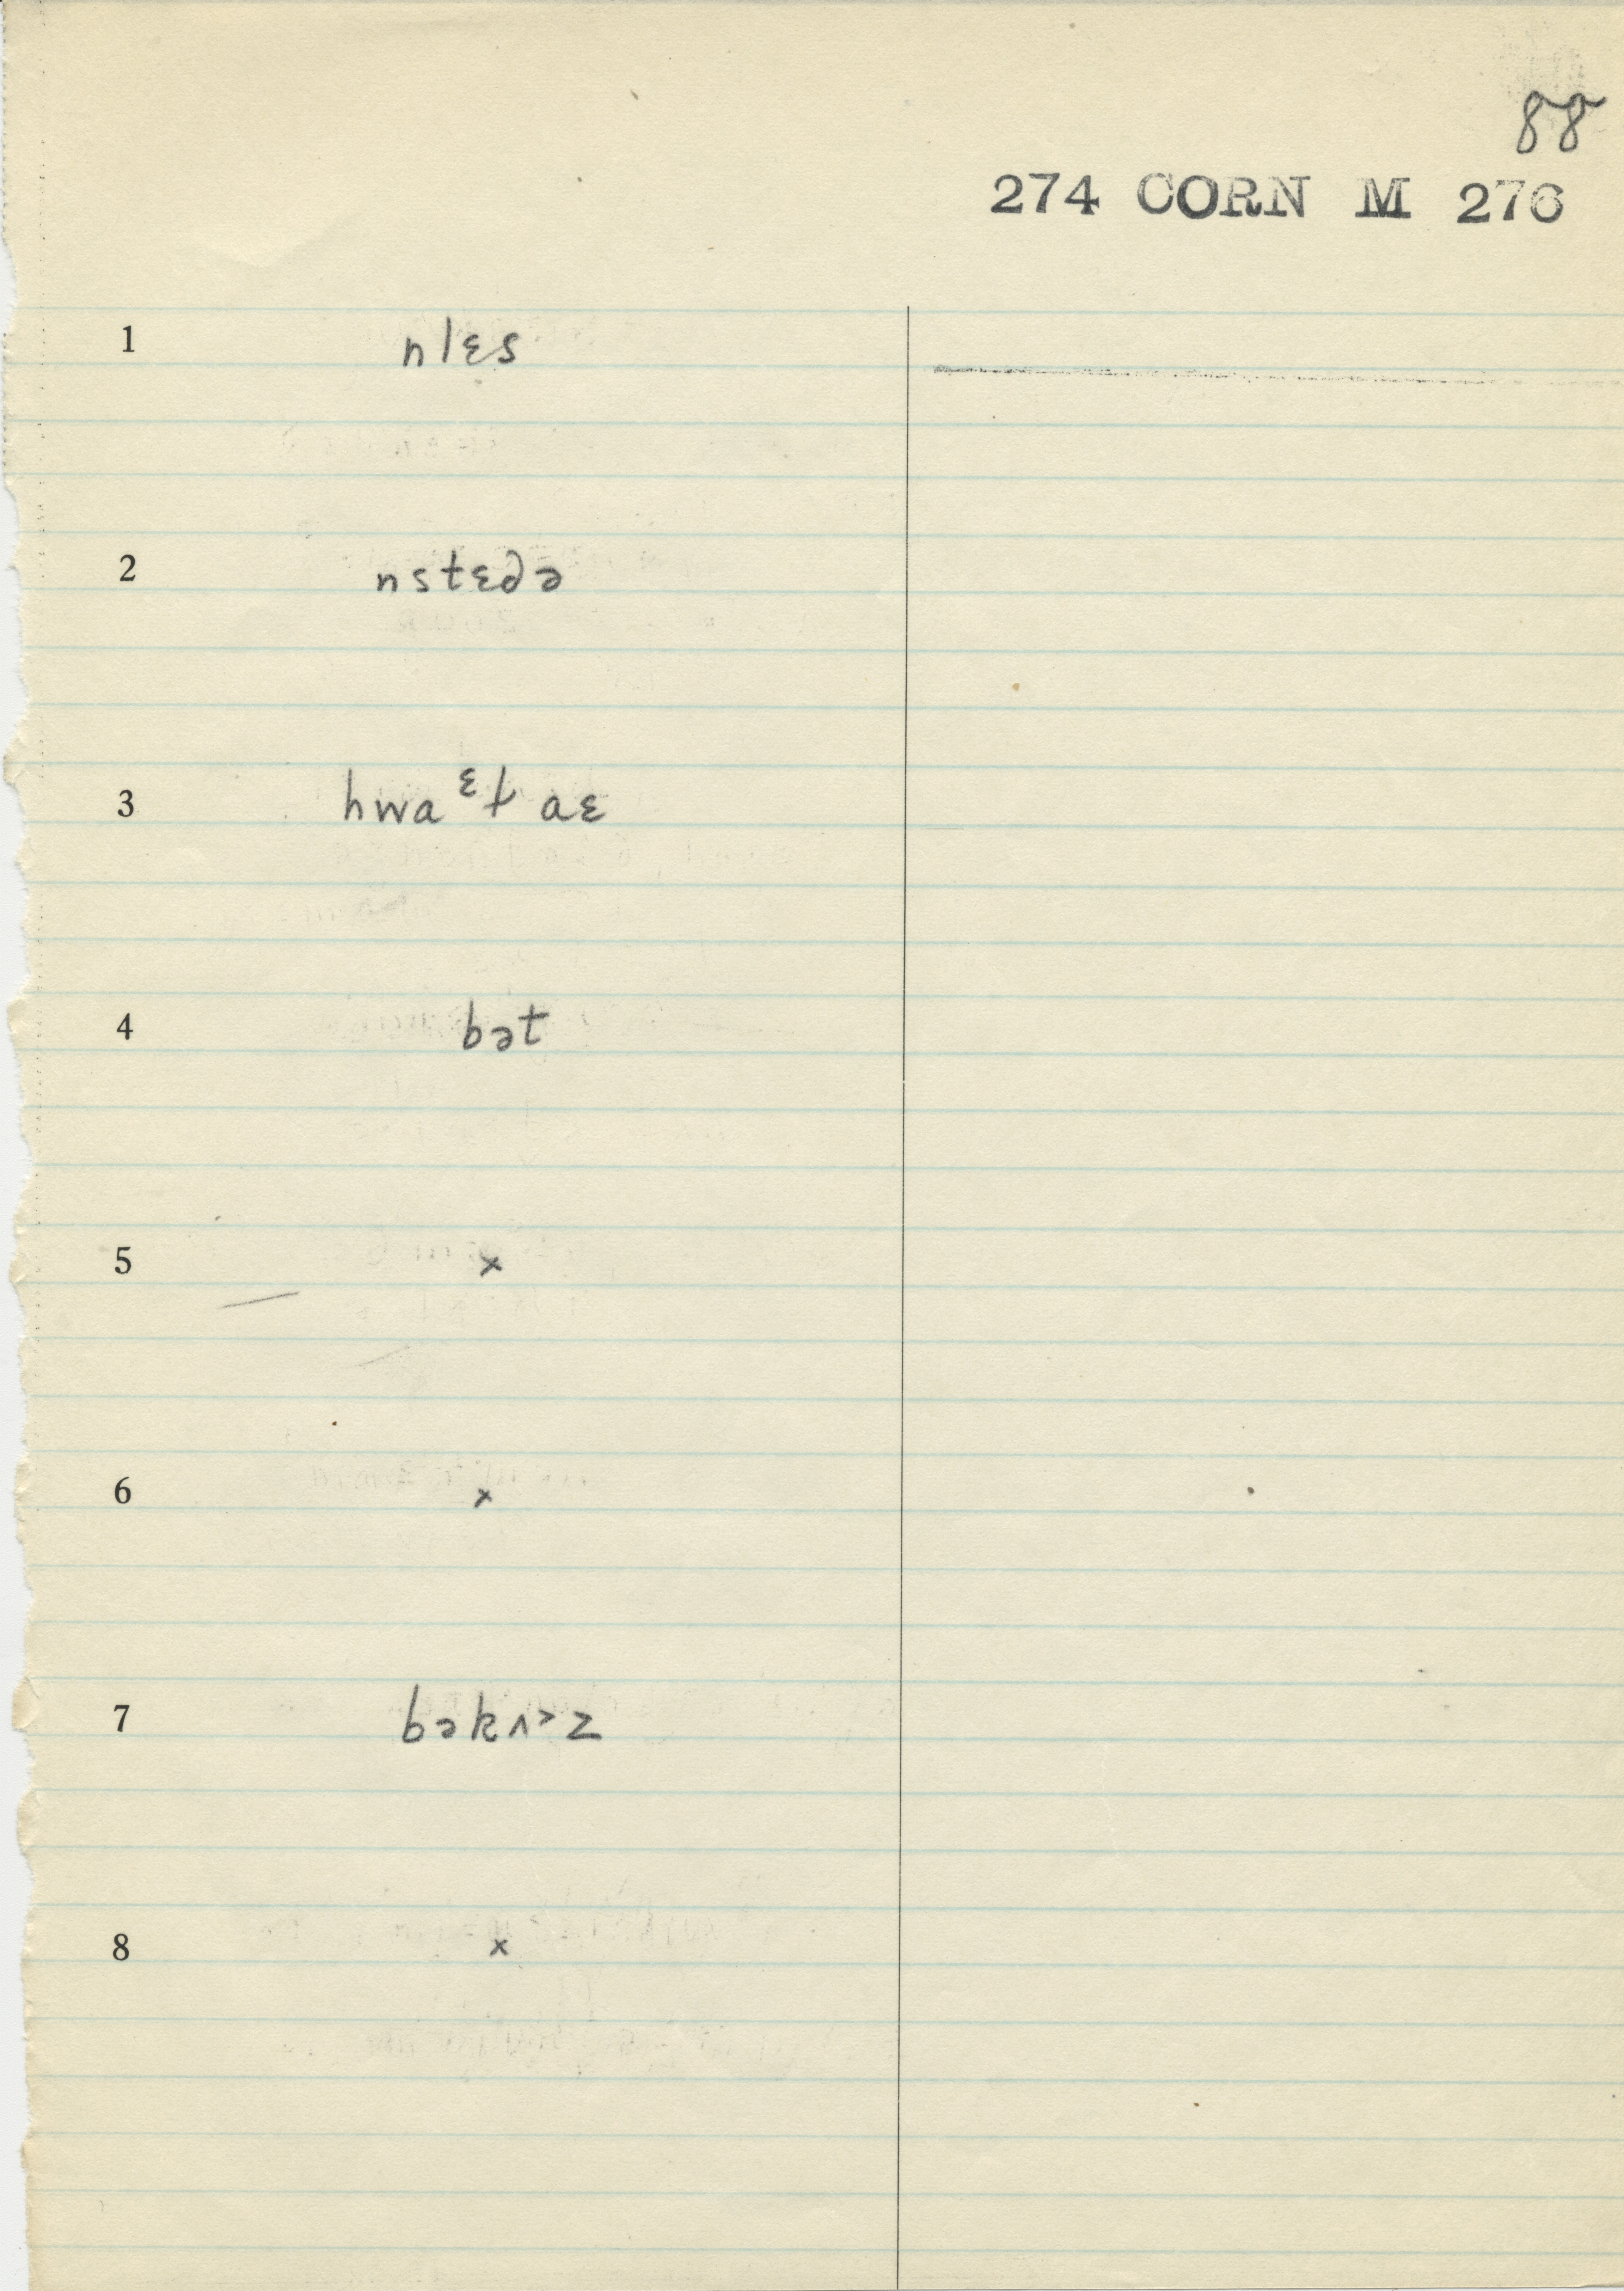 88
274 CORN M 276
1 nlɛs
2 nstɛdə
3 hwa ᵋt aɛ
4 bət
5 x
6 x
7 bəkʌ˃z
8 x